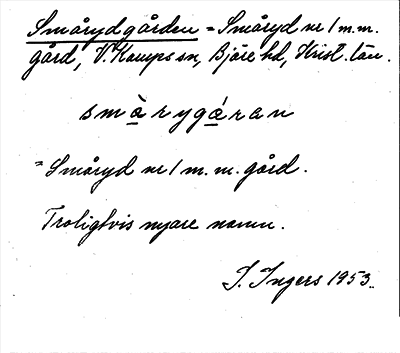 Smårydgården = Småryd nr 1 m.m.
gård, V. Karups sn, Bjäre hd, Krist. län.
smàrygáran
= Småryd nr 1 m. m. gård.
Troligtvis nyare namn.
I. Ingers 1953.